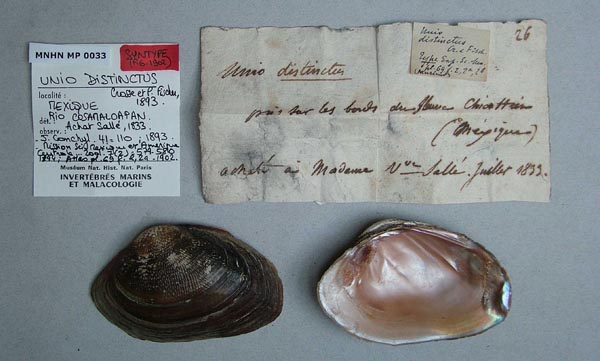 MNHN MP 0033
SYNTYPE
UNIO DISTINCTUS
localité : Crosse et P. Fischer,
1893.
MEXIQUE
RIO COSAMALOAPAN.
dét. :
Achat Sallé, 1833.
observ. :
J. Conchyl. 41: 110 ; 1893.
Mission Sc. Mexique et Amérique
Centrale
1902.
Muséum Nat. Hist. Nat. Paris
INVERTÉBRÉS MARINS
ET MALACOLOGIE
26
Unio
distinctus
Cr. et Fisch.
Type
Unio distinctus
pris sur les bords du fleuve
(Méxique)
acheté à Madame Vve Sallé, Juillet 1833.